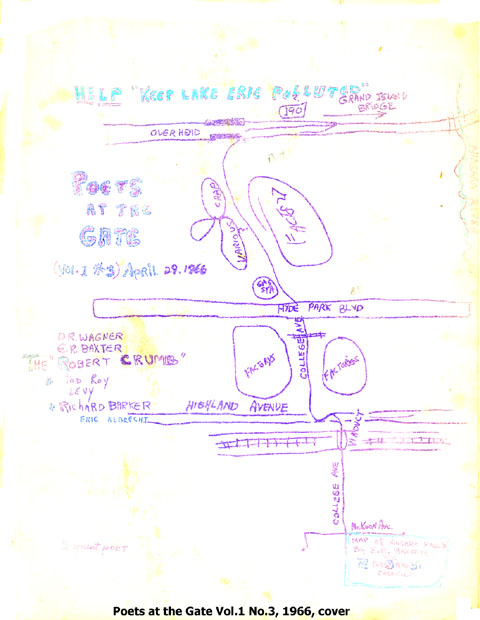 HELP "KEEP LAKE ERIE POLLUTED"
190
GRAND ISLAND
BRIDGE
OVERHEAD
POETS
AT THE
GATE
(VOL. 1 #3) APRIL 29, 1966
CRAP
VARIOUS
GAS
STA
HYDE PARK BLVD
D.R. WAGNER
E.R. BAXTER
THE "ROBERT CRUMB"
ROY
LEVY
RICHARD BARKER
ERIC ALBRECHT
FACTORYS
COLLEGE AVE
FACTORYS
HIGHLAND AVENUE
VIADUCT
COLLEGE AVE
MAP OF
GUEST POET
Poets at the Gate Vol.1 No.3, 1966, cover